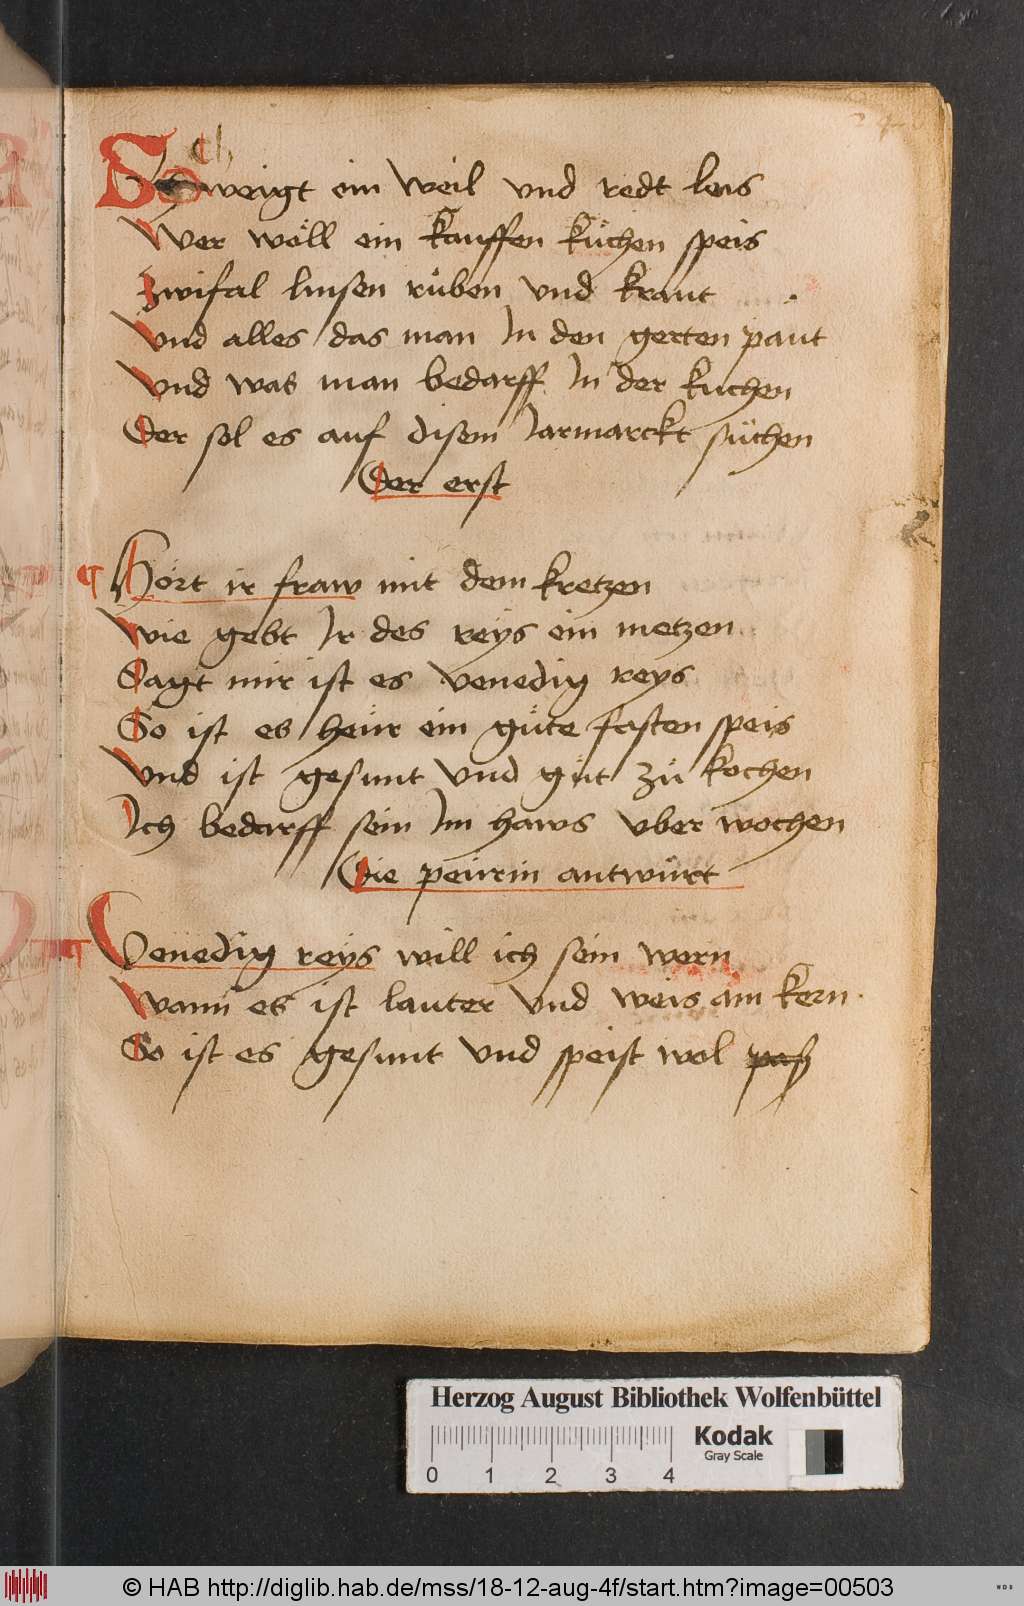 Schweigt ein weil vnd redt leis
Wer wöll ein kauffen küchen speis
Zwifal linsen rüben vnd kraut
Vnd alles das man In den gerten paut
Vnd was man bedarff In der kuchen
Der sol es auf disem Jarmarckt süchen
Der erst
Hört ir fraw mit dem kretzen
Wie gebt Ir des reys ein metzen
Sagt mir ist es venedig reys
So ist es heür ein güte fasten speis
Vnd ist gesunt vnd güt zü kochen
Ich bedarff sein Im haws vber wochen
Die peürin antwürt
Venedig reys will ich sein wern
Wann es ist lauter vnd weis am kern
So ist es gesunt vnd speist wol paß
Herzog August Bibliothek Wolfenbüttel
Kodak
Gray Scale
0 1 2 3 4
© HAB http://diglib.hab.de/mss/18-12-aug-4f/start.htm?image=00503